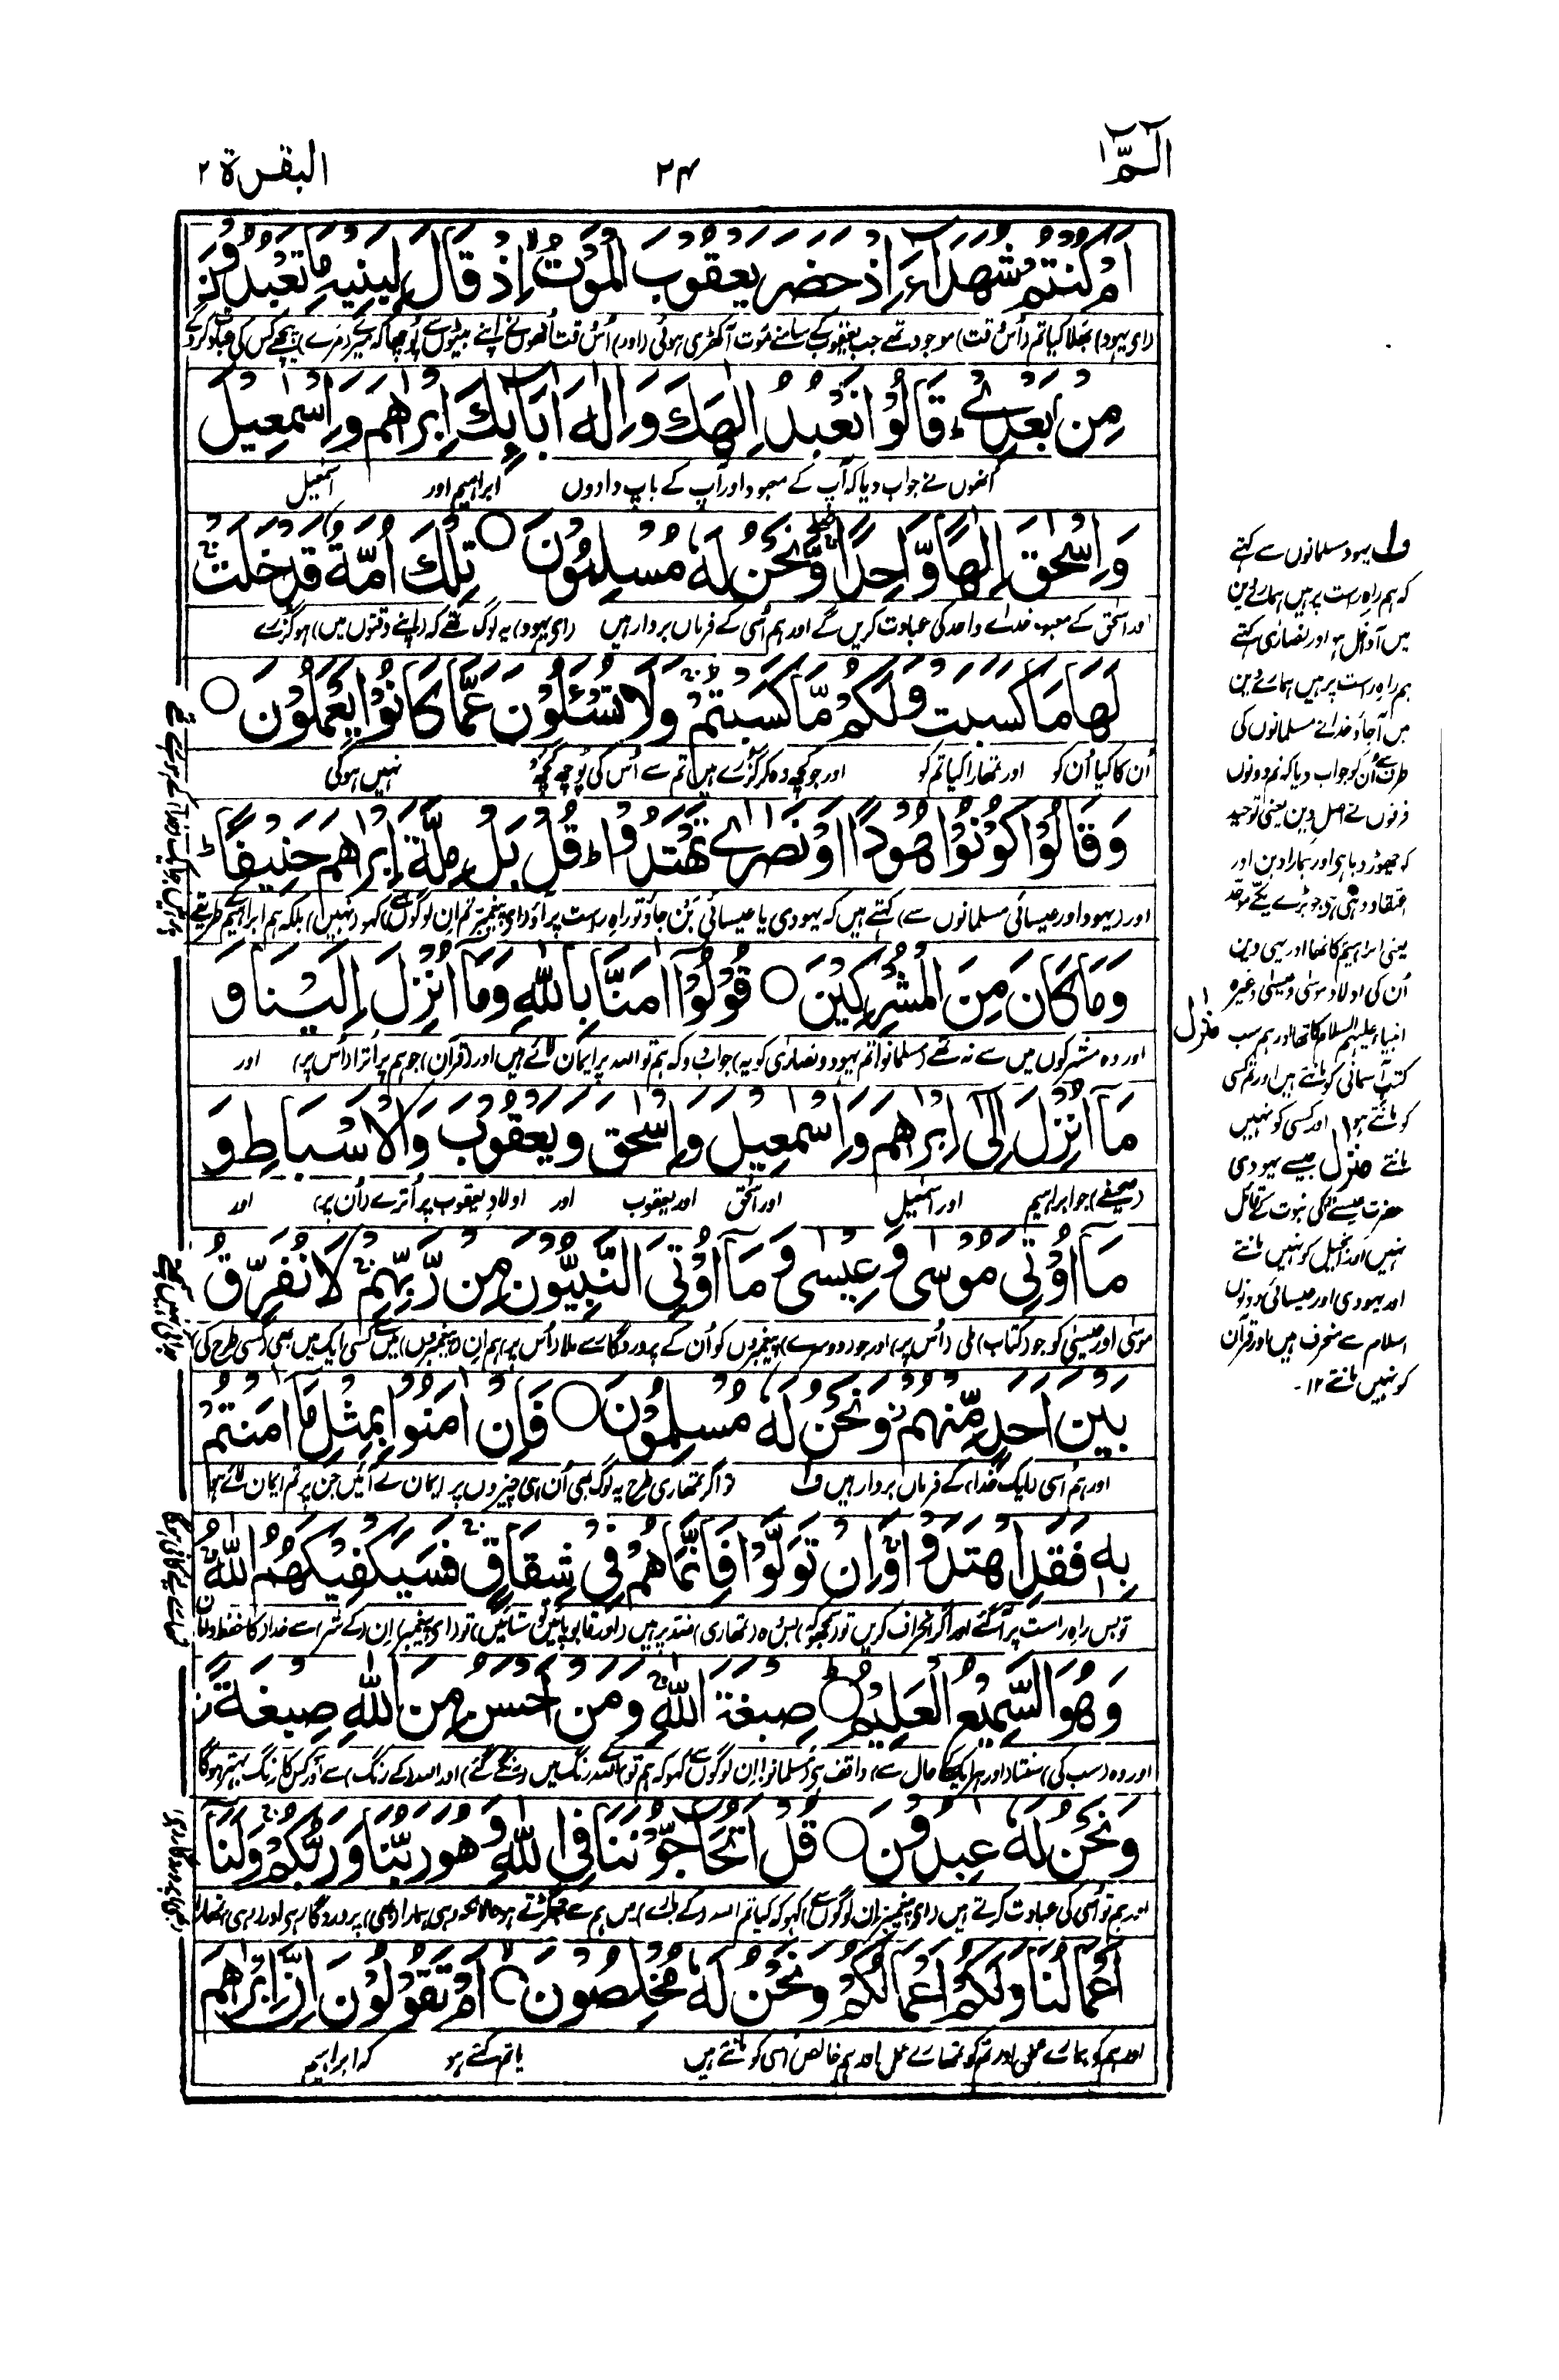 الٓمّٓ ١
٢٤
البقرة ٢
اَمْ كُنْتُمْ شُهَدَآءَ اِذْ حَضَرَ يَعْقُوْبَ الْمَوْتُ ۙ اِذْ قَالَ لِبَنِيْهِ مَا تَعْبُدُوْنَ
(اے یہود) بھلا کیا تم (اُس وقت) موجود تھے جب یعقوب کے سامنے موت آکھڑی ہوئی (اور) اُس وقت اُنھوں نے اپنے بیٹوں سے پوچھا کہ میرے (مرے) پیچھے کس کی عبادت کرو گے
مِنْۢ بَعْدِيْ ؕ قَالُوْا نَعْبُدُ اِلٰهَكَ وَاِلٰهَ اٰبَآئِكَ اِبْرٰهٖمَ وَاِسْمٰعِيْلَ
اُنھوں نے جواب دیا کہ آپ کے معبود اور آپ کے باپ دادوں ابراہیم اور اسمٰعیل
وَاِسْحٰقَ اِلٰهًا وَّاحِدًا ۖۚ وَّنَحْنُ لَهٗ مُسْلِمُوْنَ ○ تِلْكَ اُمَّةٌ قَدْ خَلَتْ ۚ
اور اسحٰق کے معبود خدائے واحد کی عبادت کریں گے اور ہم اُسی کے فرماں بردار ہیں (اے یہود) یہ لوگ تھے کہ (اپنے وقتوں میں) ہو گزرے
لَهَا مَا كَسَبَتْ وَلَكُمْ مَّا كَسَبْتُمْ ۚ وَلَا تُسْـَٔلُوْنَ عَمَّا كَانُوْا يَعْمَلُوْنَ ○
اُن کا کیا اُن کو اور تمھارا کیا تم کو اور جو کچھ وہ کر گزرے ہیں تم سے اُس کی پوچھ گچھ نہیں ہوگی
وَقَالُوْا كُوْنُوْا هُوْدًا اَوْ نَصٰرٰى تَهْتَدُوْا ؕ قُلْ بَلْ مِلَّةَ اِبْرٰهٖمَ حَنِيْفًا ؕ
اور (یہود اور عیسائی مسلمانوں سے) کہتے ہیں کہ یہودی یا عیسائی بن جاؤ تو راہِ راست پر آؤ (اے پیغمبر تم ان لوگوں سے) کہو (نہیں) بلکہ ہم ابراہیم کے طریقے
وَمَا كَانَ مِنَ الْمُشْرِكِيْنَ ○ قُوْلُوْٓا اٰمَنَّا بِاللّٰهِ وَمَآ اُنْزِلَ اِلَيْنَا وَ
اور وہ مشرکوں میں سے نہ تھے (مسلمانو! تم یہود و نصاریٰ کو یہ) جواب دو کہ ہم تو اللہ پر ایمان لائے ہیں اور (قرآن) جو ہم پر اُترا (اُس پر) اور
مَآ اُنْزِلَ اِلٰٓى اِبْرٰهٖمَ وَاِسْمٰعِيْلَ وَاِسْحٰقَ وَيَعْقُوْبَ وَالْاَسْبَاطِ وَ
(صحیفے) جو ابراہیم اور اسمٰعیل اور اسحٰق اور یعقوب اور اولادِ یعقوب پر اُترے (اُن پر) اور
مَآ اُوْتِيَ مُوْسٰى وَعِيْسٰى وَمَآ اُوْتِيَ النَّبِيُّوْنَ مِنْ رَّبِّهِمْ ۚ لَا نُفَرِّقُ
موسٰی اور عیسٰی کو جو (کتاب) ملی (اُس پر) اور جو (دوسرے) پیغمبروں کو اُن کے پروردگار سے ملا (اُس پر) ہم ان (پیغمبروں) میں سے کسی ایک میں بھی (کسی طرح کی)
بَيْنَ اَحَدٍ مِّنْهُمْ ۖ وَنَحْنُ لَهٗ مُسْلِمُوْنَ ○ فَاِنْ اٰمَنُوْا بِمِثْلِ مَآ اٰمَنْتُمْ
اور ہم اسی (ایک خدا) کے فرماں بردار ہیں ف۱ تو اگر تمھاری طرح یہ لوگ بھی اُن ہی چیزوں پر ایمان لے آئیں جن پر تم ایمان لائے ہو
بِهٖ فَقَدِ اهْتَدَوْا ۚ وَاِنْ تَوَلَّوْا فَاِنَّمَا هُمْ فِيْ شِقَاقٍ ۚ فَسَيَكْفِيْكَهُمُ اللّٰهُ ۚ
تو بس راہِ راست پر آگئے اور اگر انحراف کریں تو (سمجھو کہ) بس وہ (تمھاری) ضد پر ہیں
وَهُوَ السَّمِيْعُ الْعَلِيْمُ ○ صِبْغَةَ اللّٰهِ ۚ وَمَنْ اَحْسَنُ مِنَ اللّٰهِ صِبْغَةً ز
اور وہ (سب کی) سنتا (اور ہر ایک کا حال سے) واقف ہے (مسلمانو! ان لوگوں سے کہو کہ ہم تو) اللہ کے رنگ میں (رنگے گئے) اور اللہ (کے رنگ) سے اور کس کا رنگ بہتر ہوگا
وَّنَحْنُ لَهٗ عٰبِدُوْنَ ○ قُلْ اَتُحَآجُّوْنَنَا فِي اللّٰهِ وَهُوَ رَبُّنَا وَرَبُّكُمْ ۚ وَلَنَآ
اور ہم تو اُسی کی عبادت کرتے ہیں (اے پیغمبر ان لوگوں سے) کہو کہ کیا تم اللہ (کے بارے) میں ہم سے جھگڑتے ہو حالانکہ وہی ہمارا (بھی) پروردگار ہے اور وہی تمھارا
اَعْمَالُنَا وَلَكُمْ اَعْمَالُكُمْ ۚ وَنَحْنُ لَهٗ مُخْلِصُوْنَ ○ اَمْ تَقُوْلُوْنَ اِنَّ اِبْرٰهٖمَ
اور ہم کو ہمارے عمل اور تم کو تمھارے عمل اور ہم خالص اسی کو مانتے ہیں یا تم کہتے ہو کہ ابراہیم
ف۱ یہود مسلمانوں سے کہتے
کہ ہم راہِ راست پر ہیں ہمارے دین
میں آداخل ہو اور نصاریٰ کہتے
ہم راہِ راست پر ہیں ہمارے دین
میں آجاؤ خدا نے مسلمانوں کی
طرف سے اُن کو جواب دیا کہ تم دونوں
فرقوں نے اصل دین یعنی توحید
کو چھوڑ دیا ہے اور ہمارا دین اور
اعتقاد وہی ہے جو بڑے پکے موحّد
یعنی ابراہیم کا تھا اور یہی دین
اُن کی اولاد موسٰی و عیسٰی وغیرہ
انبیاء علیہم السلام کا تھا اور ہم سب
کتبِ آسمانی کو مانتے ہیں اور تم کسی
کو مانتے ہو اور کسی کو نہیں
مانتے منزل جیسے یہودی
حضرت عیسٰی کی نبوت کے قائل
نہیں اور انجیل کو نہیں مانتے
اور یہودی اور عیسائی دونوں
اسلام سے منحرف ہیں اور قرآن
کو نہیں مانتے ۱۲-
منزل ۱